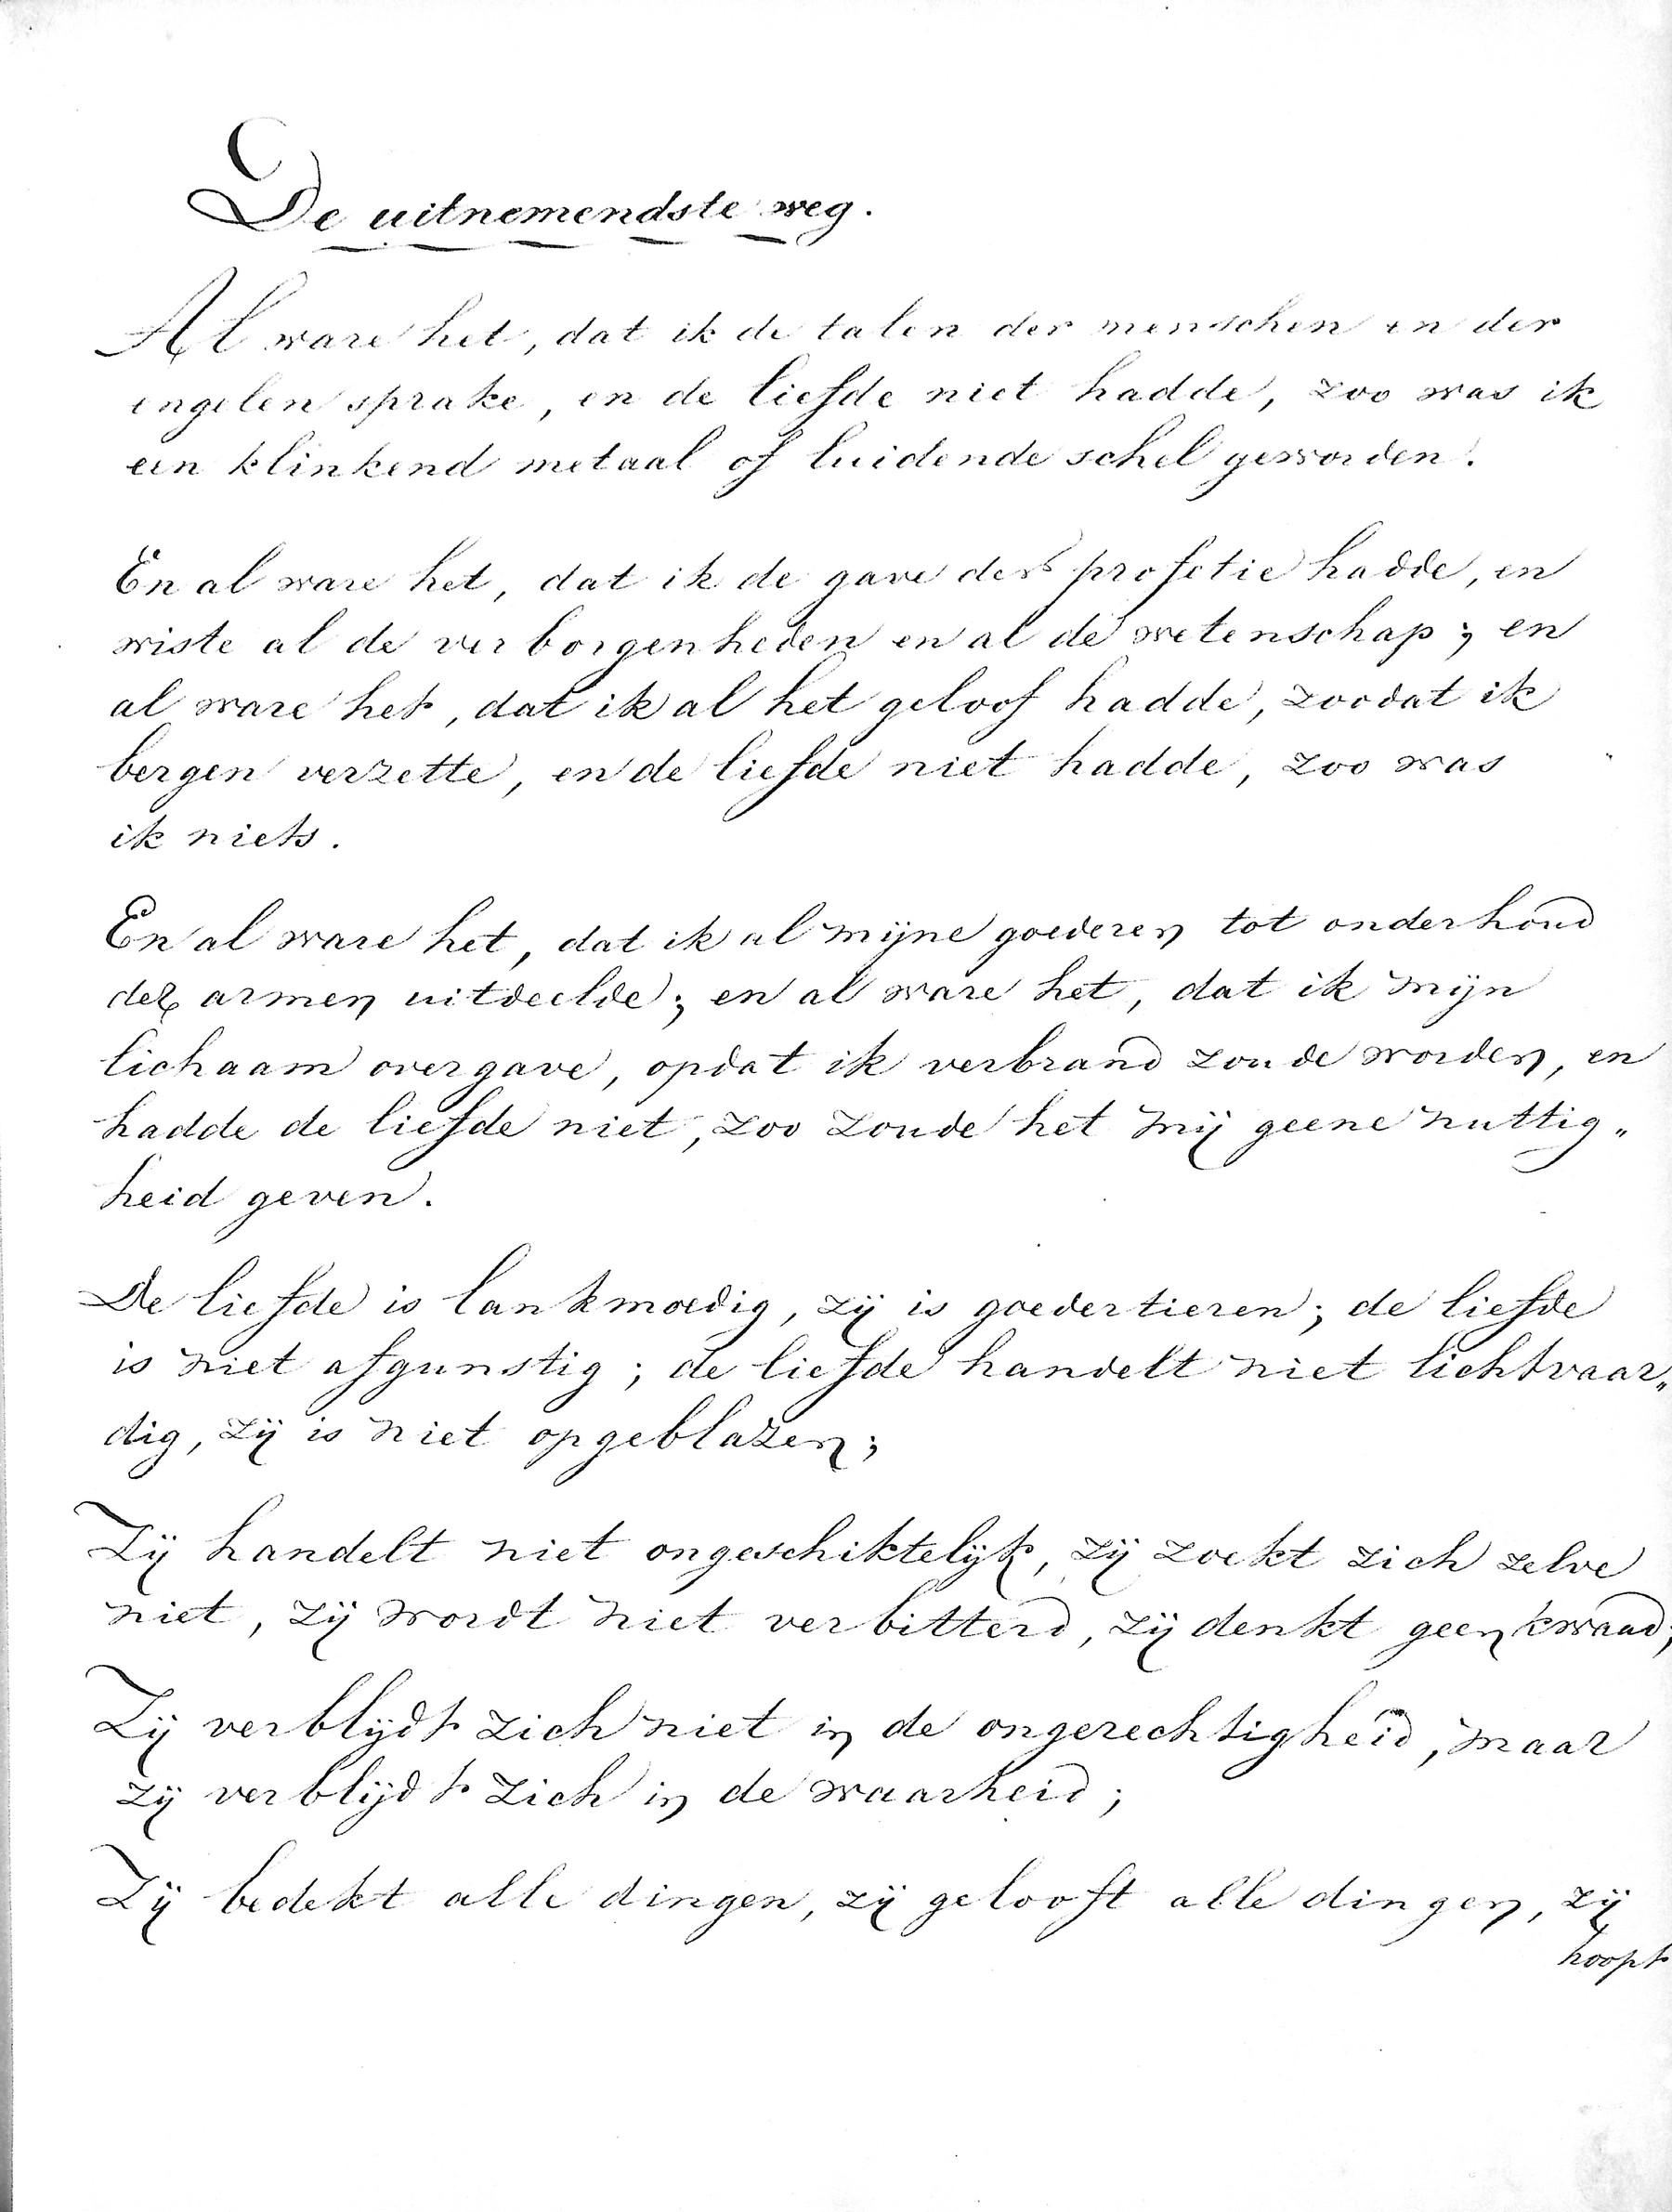 De uitnemendste weg.
Al ware het, dat ik de talen der menschen en der
engelen sprake, en de liefde niet hadde, zoo was ik
een klinkend metaal of luidende schel geworden.
En al ware het, dat ik de gave der profetie hadde, en
wiste al de verborgenheden en al de wetenschap; en
al ware het, dat ik al het geloof hadde, zoodat ik
bergen verzette, en de liefde niet hadde, zoo was
ik niets.
En al ware het, dat ik al mijne goederen tot onderhoud
der armen uitdeelde; en al ware het, dat ik mijn
lichaam overgave, opdat ik verbrand zoude worden, en
hadde de liefde niet, zoo zoude het mij geene nuttig„
heid geven.
De liefde is lankmoedig, zij is goedertieren; de liefde
is niet afgunstig; de liefde handelt niet lichtvaar„
dig, zij is niet opgeblazen;
Zij handelt niet ongeschiktelijk, zij zoekt zich zelve
niet, zij wordt niet verbitterd, zij denkt geen kwaad;
Zij verblijdt zich niet in de ongerechtigheid, maar
zij verblijdt zich in de waarheid;
Zij bedekt alle dingen, zij gelooft alle dingen, zij
hoopt